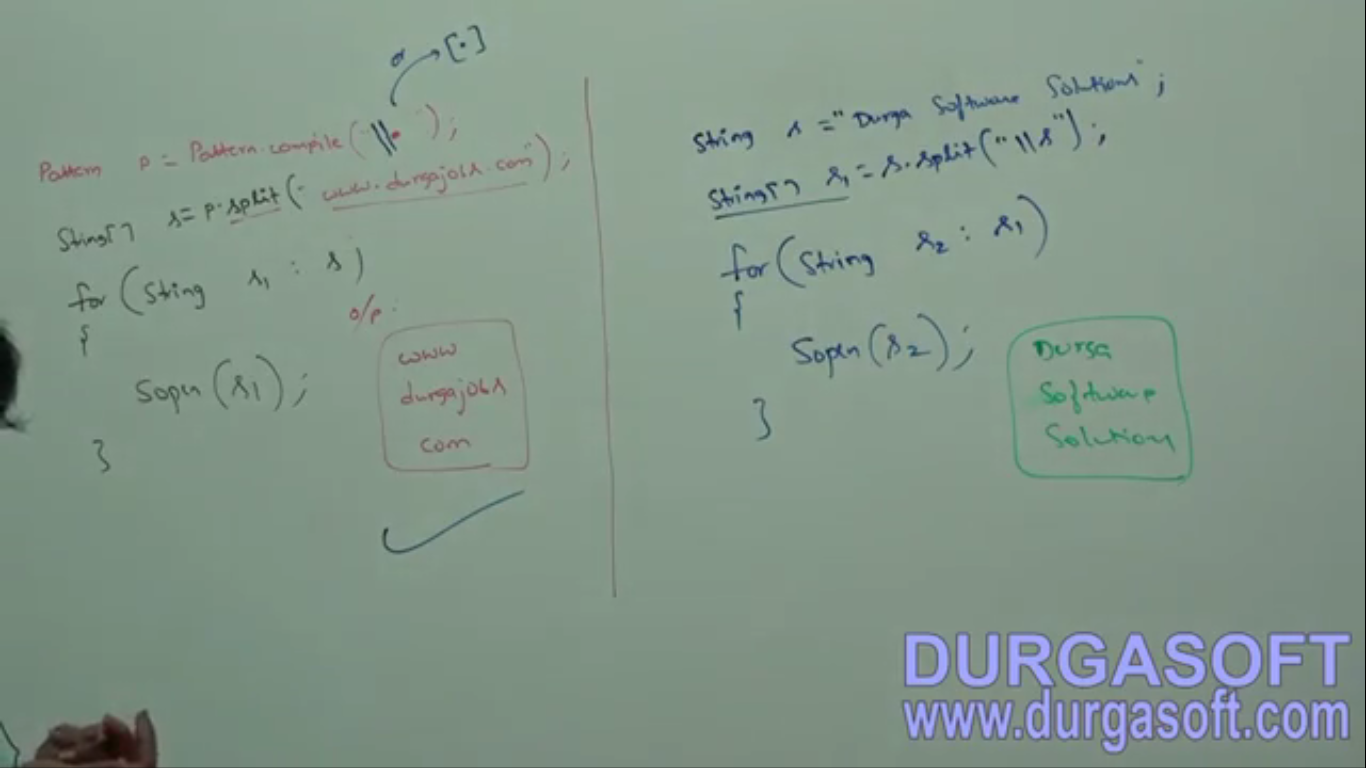 or → [.]
Pattern p = Pattern.compile("\\.");
String[] s = p.split("www.durgajobs.com");
for (String s1 : s)
{
o/p:
Sopln(s1);
}
www
durgajobs
com
String s = "Durga Software Solutions";
String[] s1 = s.split("\\s");
for (String s2 : s1)
{
Sopln(s2);
}
Durga
Software
Solutions
DURGASOFT
www.durgasoft.com